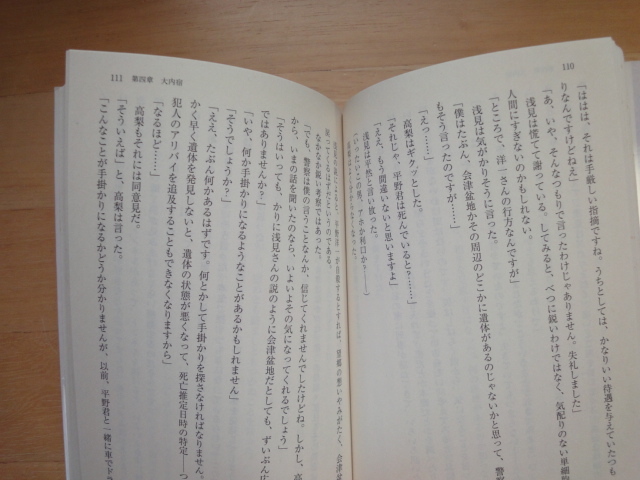 110
「ははは、それは手厳しい指摘ですね。うちとしては、かなりいい待遇を与えていたつも
りなんですけどねえ」
「あ、いや、そんなつもりで言ったわけじゃありません。失礼しました」
浅見は慌てて謝っている。してみると、べつに鋭いわけではなく、気配りのない単細胞
人間にすぎないのかもしれない。
「ところで、洋一さんの行方なんですが」
浅見は気がかりそうに言った。
「僕はたぶん、会津盆地かその周辺のどこかに遺体があるのじゃないかと思って、警
もそう言ったのですが……」
「えっ……」
高梨はギクッとした。
「それじゃ、平野君は死んでいると?……」
「ええ、もう間違いないと思いますよ」
浅見は平然と言い放った。
(いったいこの男、アホか利口か?――)
111 第四章 大内宿
なかなか鋭い考察ではあった。
「でも、警察は僕の言うことなんか、信じてくれませんでしたけどね。しかし、高
から、いまの話を聞いたのなら、いよいよその気になってくれるでしょう」
「そうはいっても、かりに浅見さんの説のように会津盆地だとしても、ずいぶん広
ではありませんか?」
「いや、何か手掛かりになるようなことがあるかもしれません」
「そうでしょうか?」
「ええ、たぶん何かあるはずです。何とかして手掛かりを探さなければなりません。
かく早く遺体を発見しないと、遺体の状態が悪くなって、死亡推定日時の特定――つ
犯人のアリバイを追及することもできなくなりますから」
「なるほど……」
高梨もそれには同意見だ。
「そういえば」と、高梨は言った。
「こんなことが手掛かりになるかどうか分かりませんが、以前、平野君と一緒に車でドラ